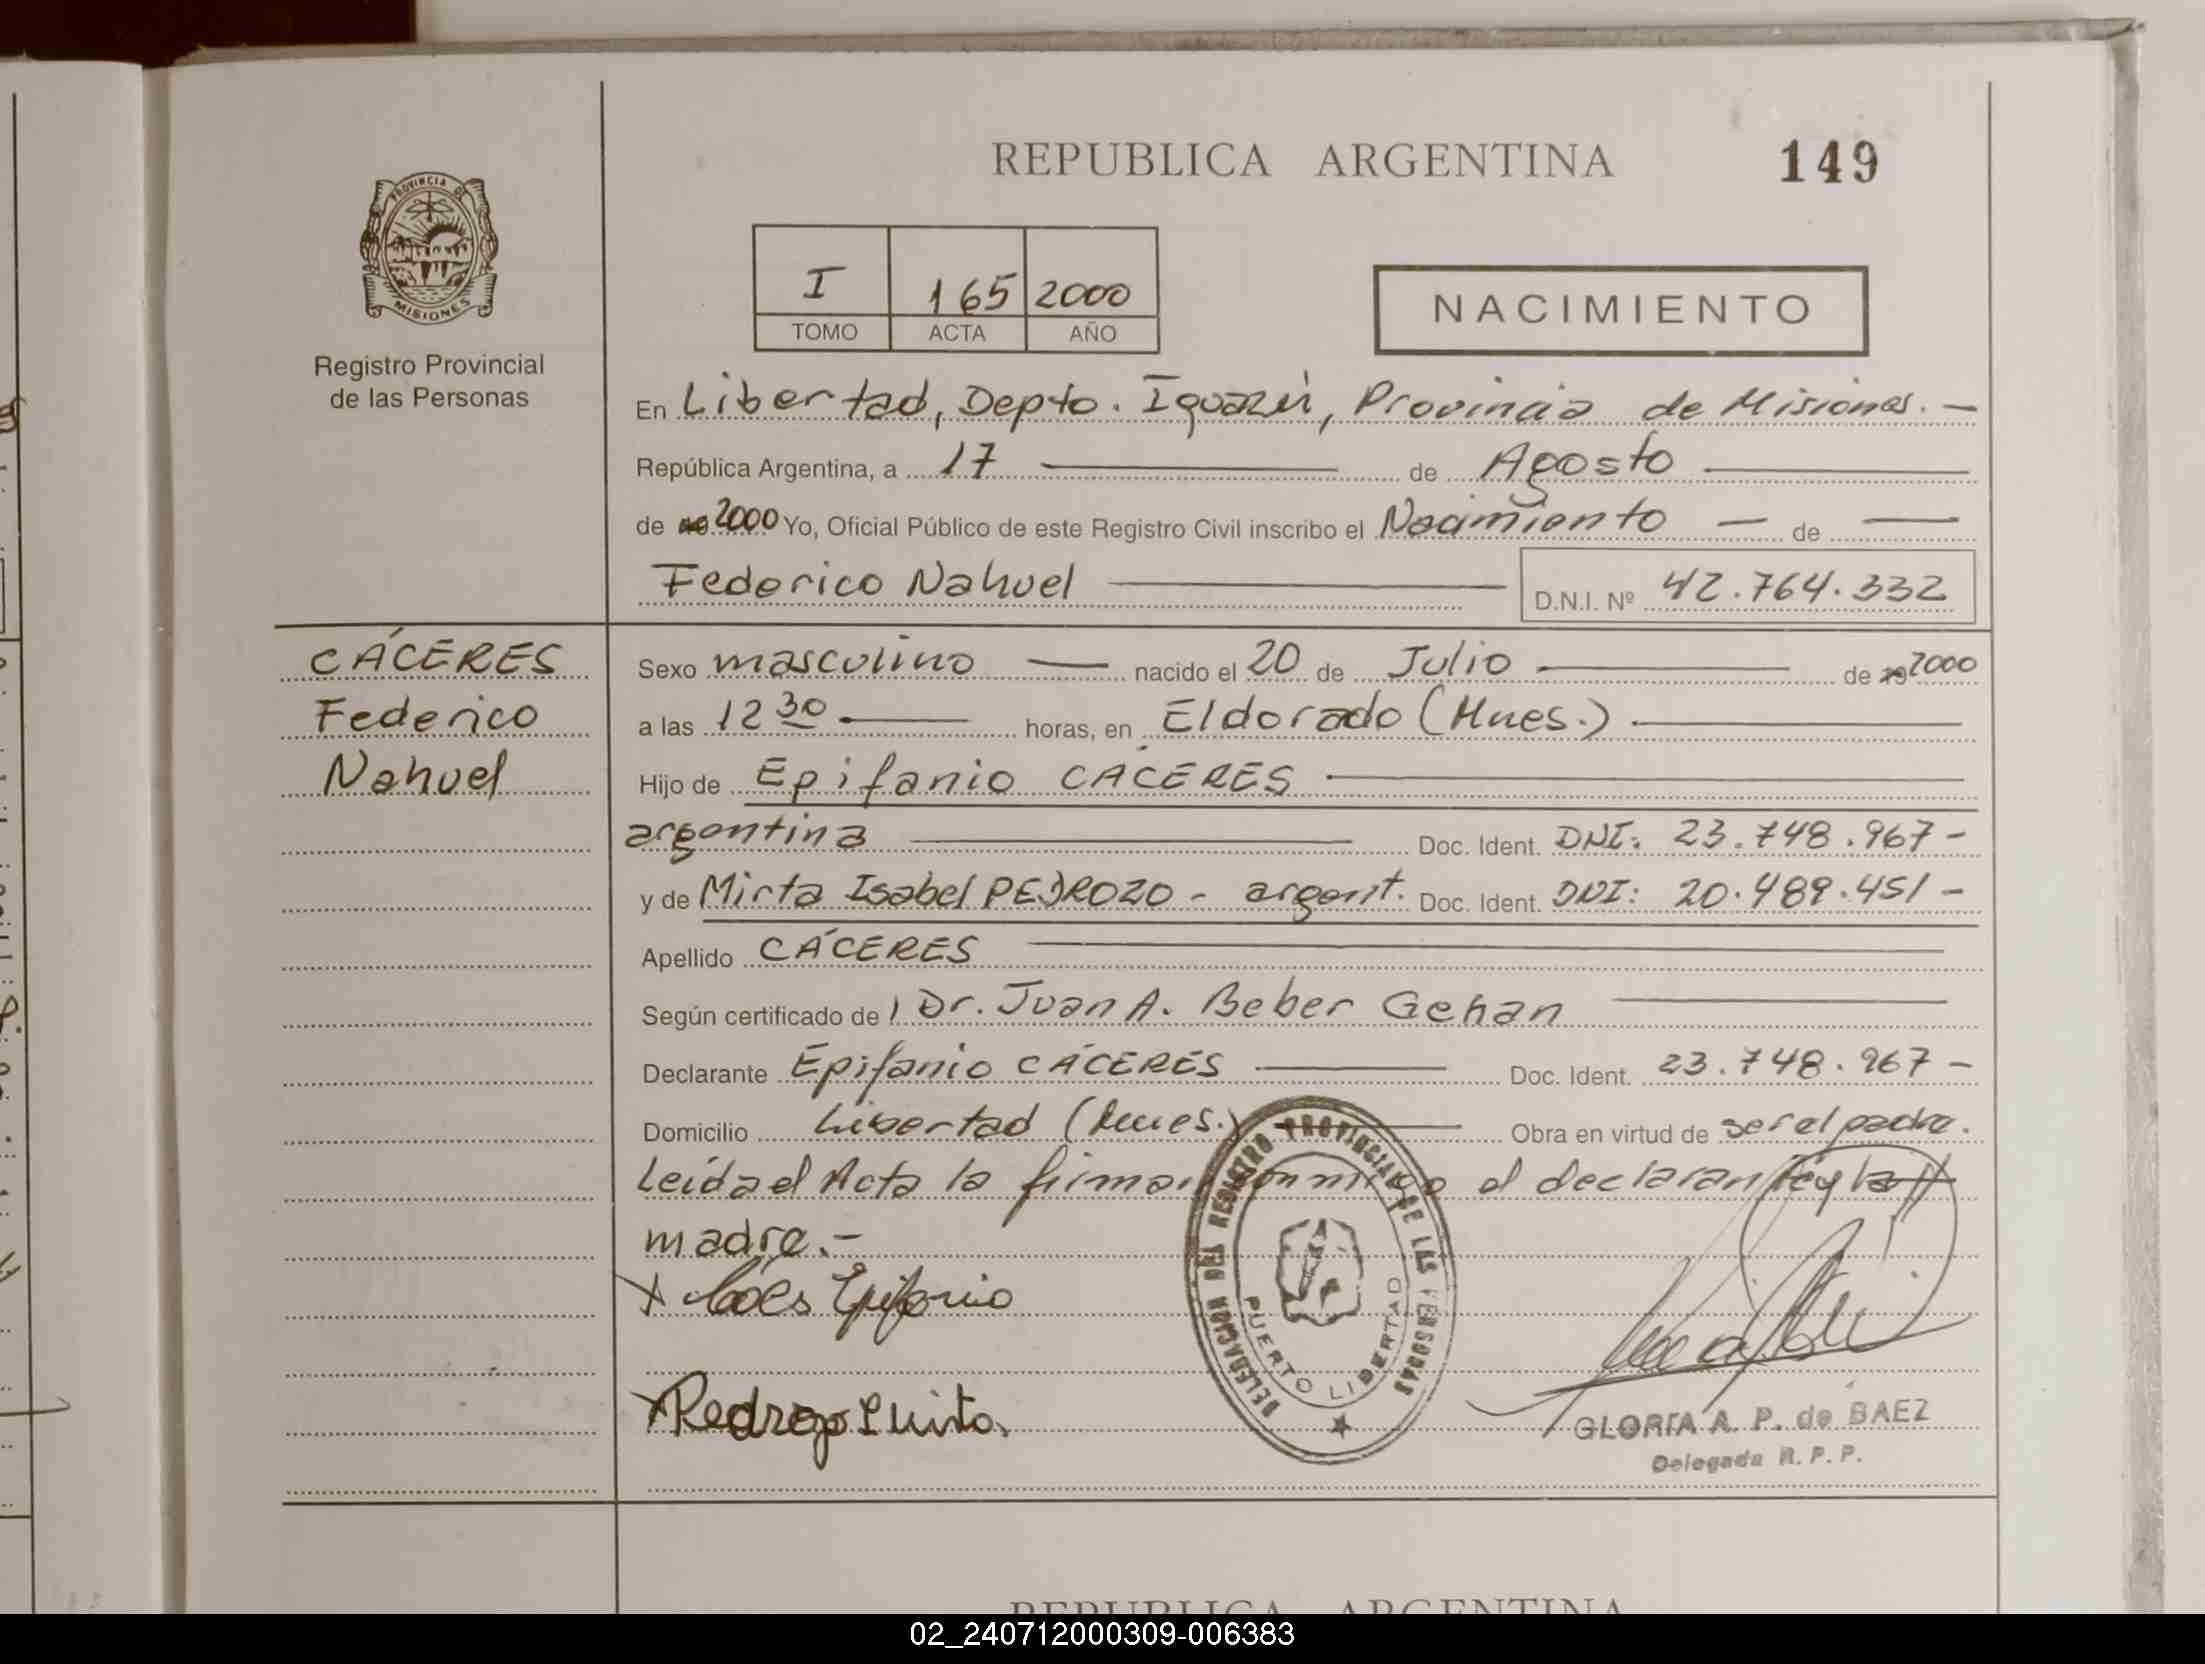 REPUBLICA ARGENTINA
149
PROVINCIA DE
MISIONES
Registro Provincial
de las Personas
I 165 2000
TOMO ACTA AÑO
NACIMIENTO
En Libertad, Depto. Iguazú, Provincia de Misiones. —
República Argentina, a 17 — de Agosto —
de 2000 Yo, Oficial Público de este Registro Civil inscribo el Nacimiento — de —
Federico Nahuel — D.N.I. Nº 42.764.332
CÁCERES
Federico
Nahuel
Sexo masculino — nacido el 20 de Julio — de 2000
a las 12 30 — horas, en Eldorado (Mnes.) —
Hijo de Epifanio CÁCERES —
argentina — Doc. Ident. DNI: 23.748.967 -
y de Mirta Isabel PEDROZO - argent. Doc. Ident. DNI: 20.489.451 -
Apellido CÁCERES —
Según certificado de Dr. Juan A. Beber Gehan —
Declarante Epifanio CÁCERES — Doc. Ident. 23.748.967 -
Domicilio Libertad (Mnes.) — Obra en virtud de ser el padre.
Leída el Acta la firman conmigo el declarante y la
madre.-
DELEGACION DEL REGISTRO PROVINCIAL DE LAS PERSONAS
PUERTO LIBERTAD
GLORIA A. P. de BAEZ
Delegada R. P. P.
REPUBLICA ARGENTINA
02_240712000309-006383